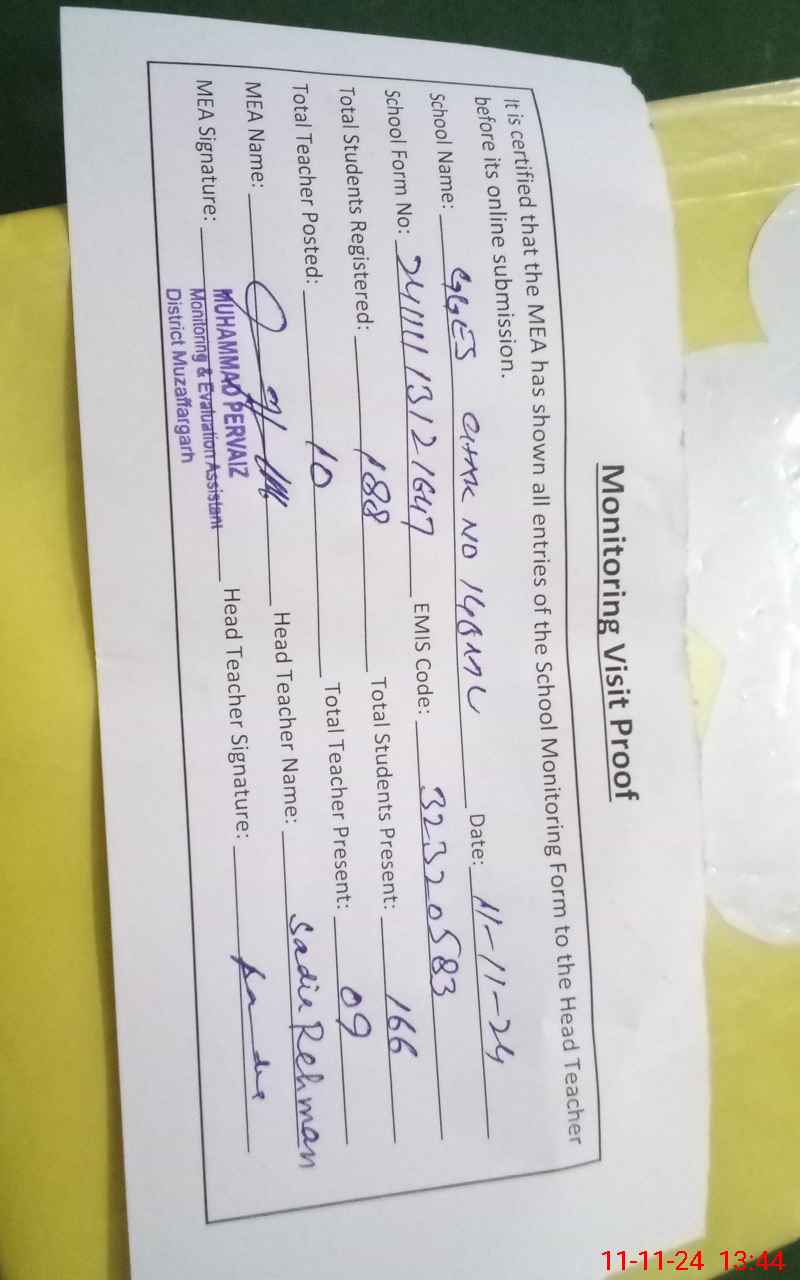 Monitoring Visit Proof
It is certified that the MEA has shown all entries of the School Monitoring Form to the Head Teacher
before its online submission.
School Name: GGES CHAK NO 148 ML Date: 11-11-24
School Form No: EMIS Code: 32320583
Total Students Registered: 188 Total Students Present: 166
Total Teacher Posted: 10 Total Teacher Present: 09
MEA Name: Head Teacher Name: Sadia Rehman
MEA Signature: Head Teacher Signature:
MUHAMMAD PERVAIZ
Monitoring & Evaluation Assistant
District Muzaffargarh
11-11-24 13:44